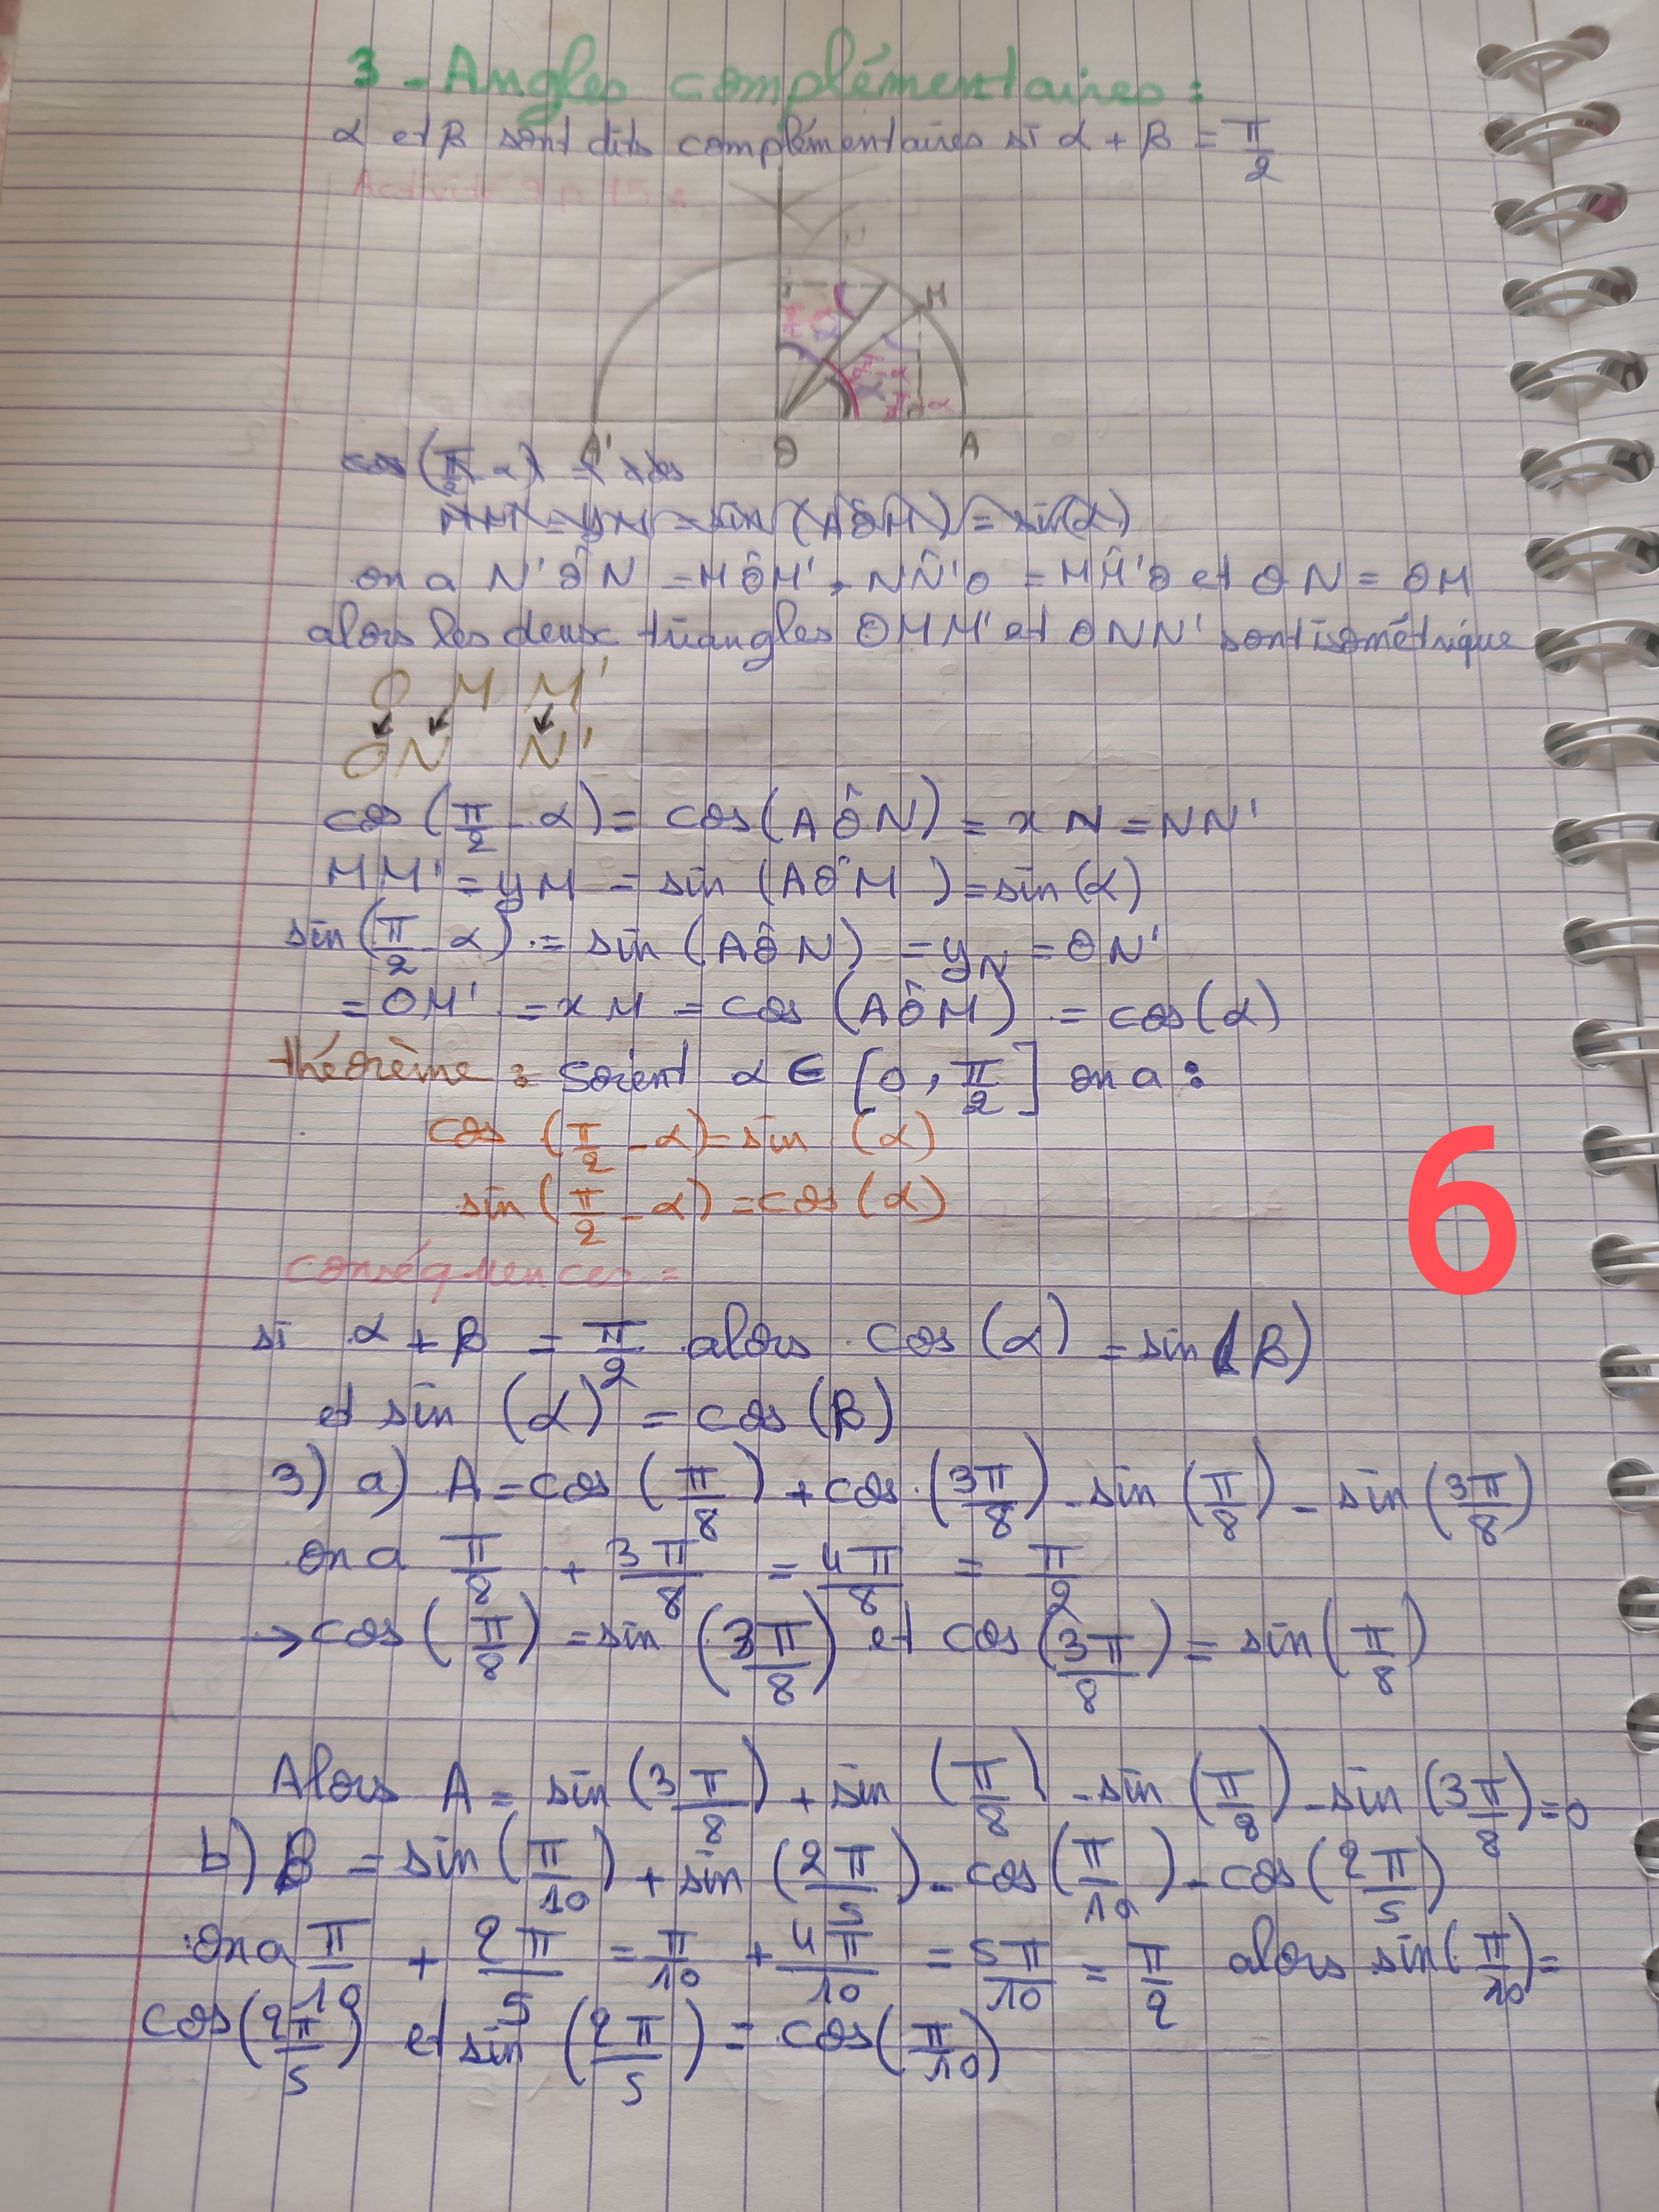 3 - Angles complémentaires :
α et β sont dits complémentaires si α + β = π/2
Activité 9 p 15 :
N
M
π/2 - α
A' O A
cos(π/2 - α) =
MM' = yM = sin(AÔM) = sin(α)
on a N'ÔN = MÔM' , NN̂'O = MM̂'O et ON = OM
alors les deux triangles OMM' et ONN' sont isométrique
O M M'
O N N'
cos(π/2 - α) = cos(AÔN) = xN = NN'
MM' = yM = sin(AÔM) = sin(α)
sin(π/2 - α) = sin(AÔN) = yN = ON'
= OM' = xM = cos(AÔM) = cos(α)
théorème : Soient α ∈ [0, π/2] on a :
cos(π/2 - α) = sin(α)
sin(π/2 - α) = cos(α)
conséquences =
si α + β = π/2 alors cos(α) = sin(β)
et sin(α) = cos(β)
6
3) a) A = cos(π/8) + cos(3π/8) - sin(π/8) - sin(3π/8)
on a π/8 + 3π/8 = 4π/8 = π/2
→ cos(π/8) = sin(3π/8) et cos(3π/8) = sin(π/8)
Alors A = sin(3π/8) + sin(π/8) - sin(π/8) - sin(3π/8) = 0
b) B = sin(π/10) + sin(2π/5) - cos(π/10) - cos(2π/5)
on a π/10 + 2π/5 = π/10 + 4π/10 = 5π/10 = π/2 alors sin(π/10) =
cos(2π/5) et sin(2π/5) = cos(π/10)